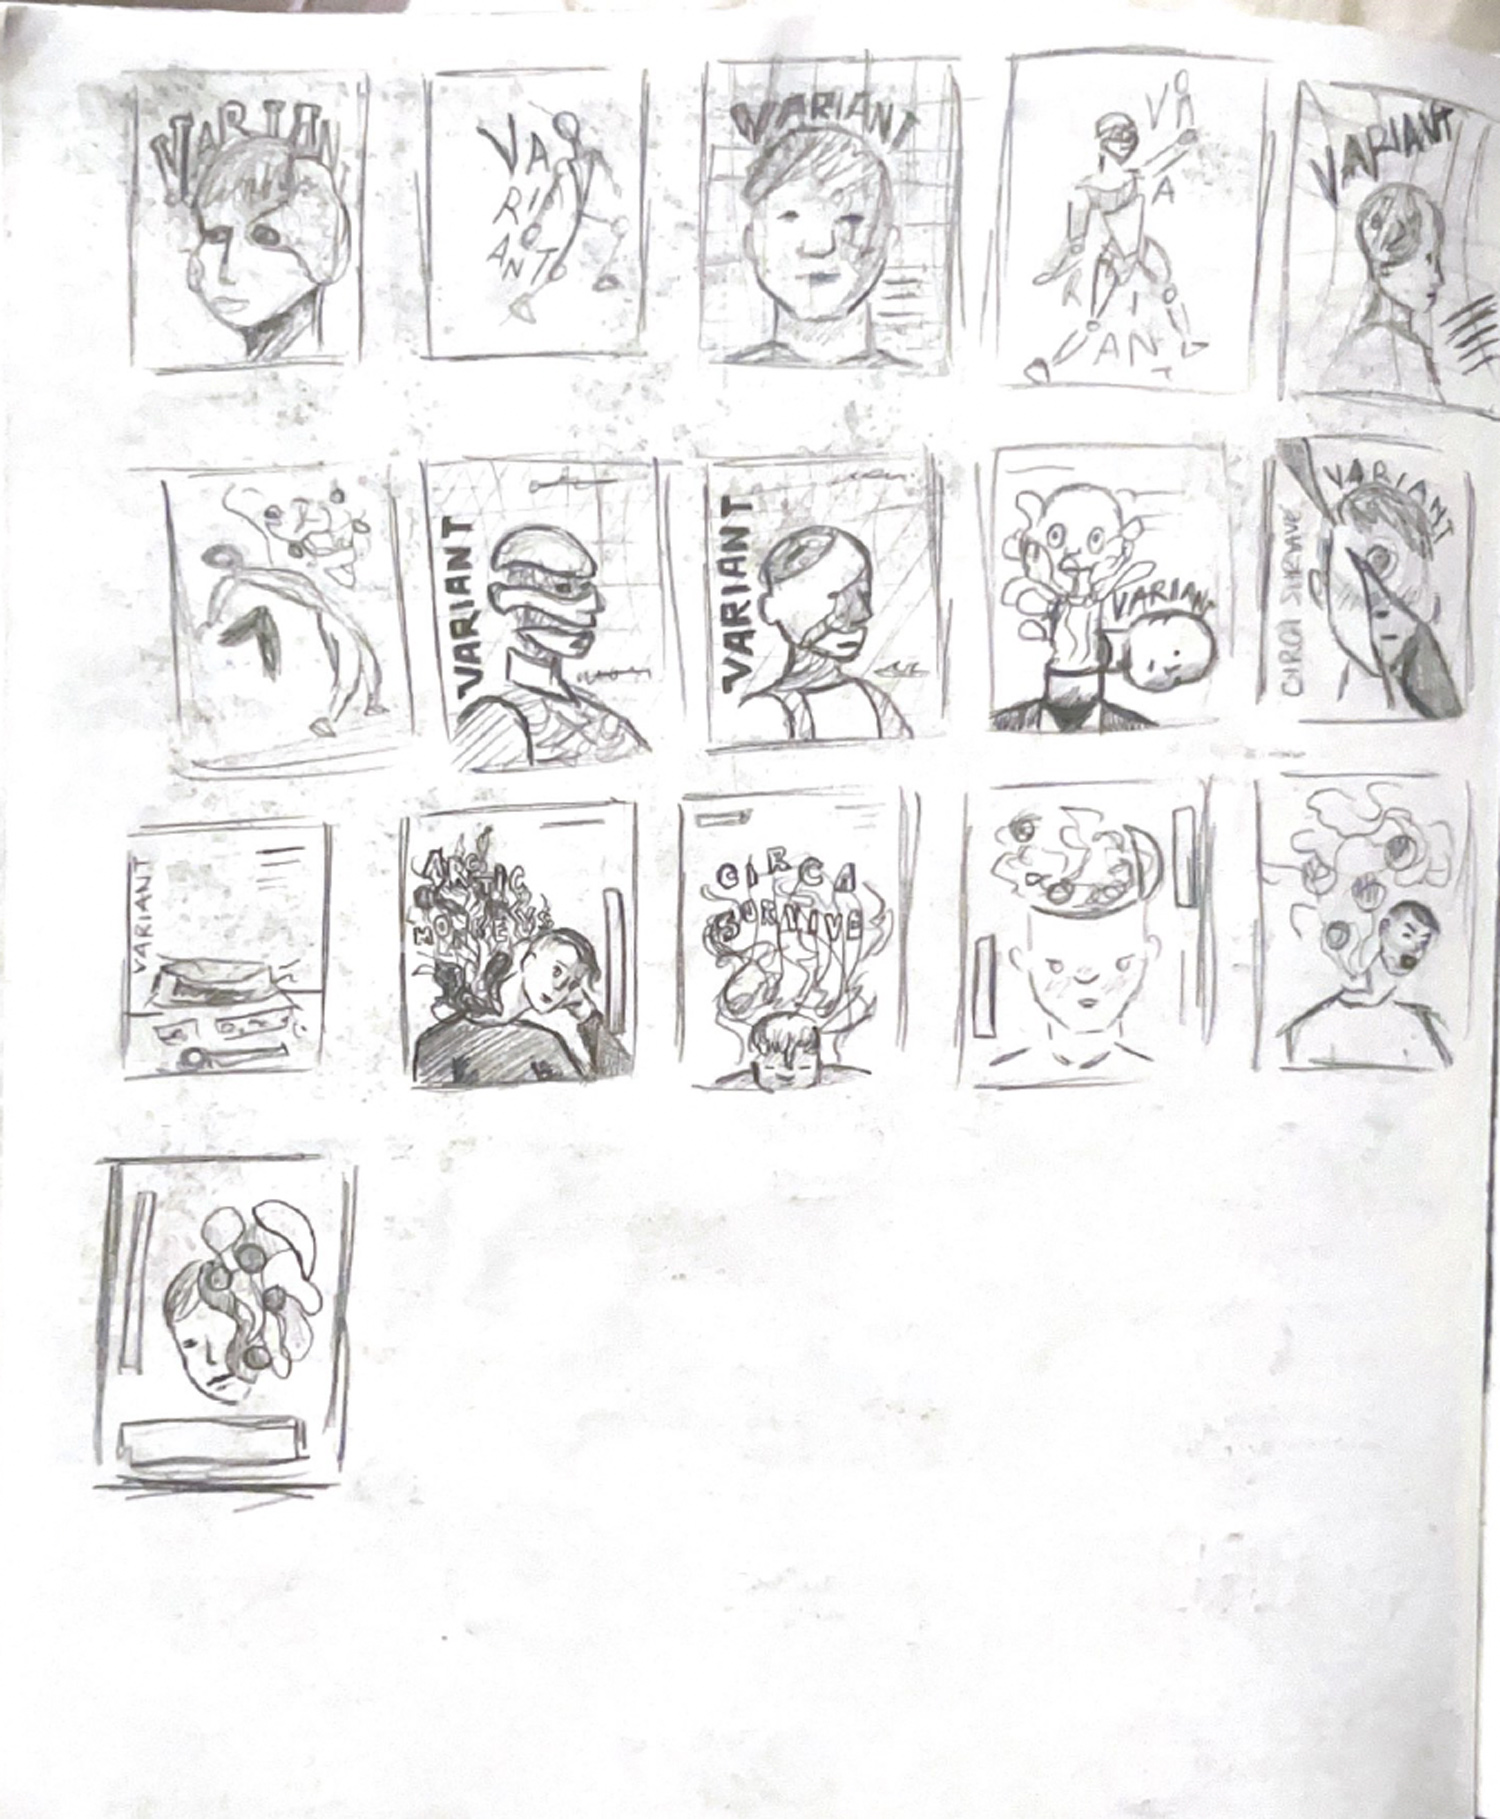 VARIAN
VA
RI
ANT
VARIANT
VA
R
I
A
ANT
VARIANT
VARIANT
VARIANT
VARIANT
VARIANT
CIRCA SURVIVE
VARIANT
ARCTIC
MONKEYS
CIRCA
SURVIVE